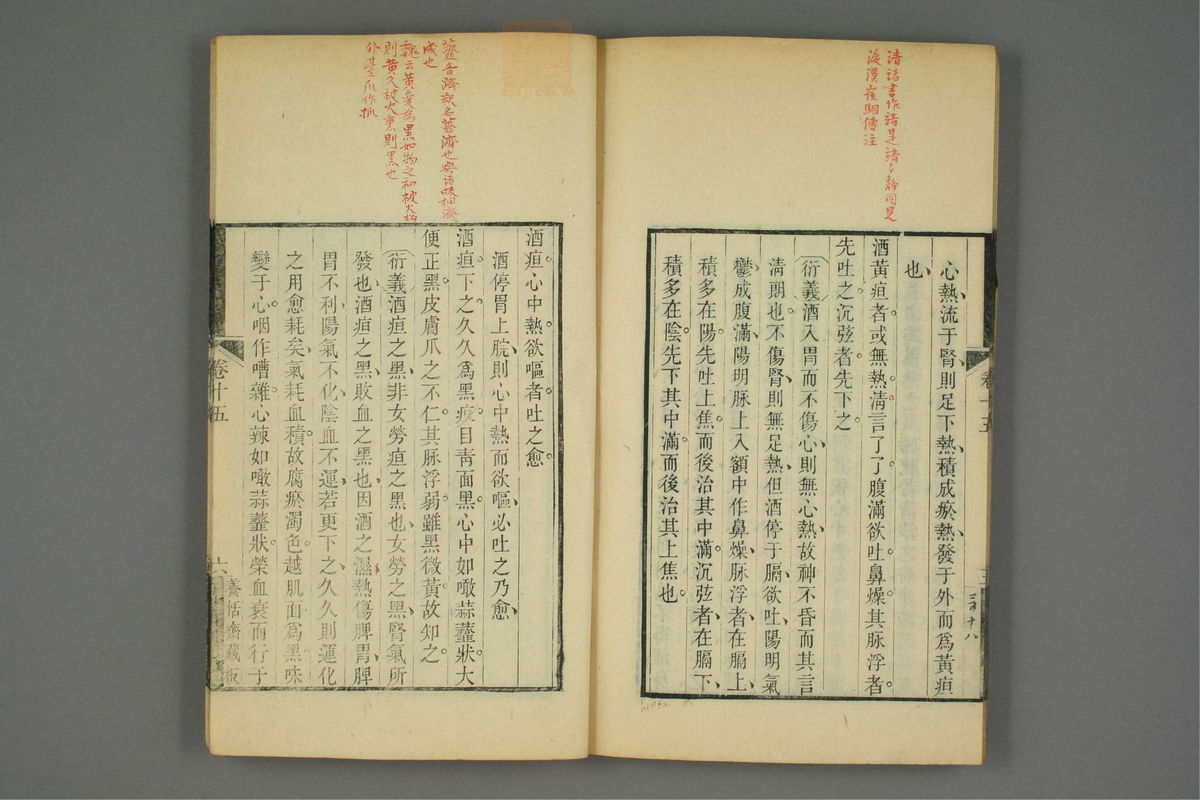 清諸書作請是請〻靜同見
後漢崔駰傳注
心熱流于腎則足下熱積成瘀熱發于外而爲黃疸
也
酒黃疸者或無熱淸言了了腹滿欲吐鼻燥其脉浮者
先吐之沉弦者先下之
衍義酒入胃而不傷心則無心熱故神不昏而其言
淸朗也不傷腎則無足熱但酒停于膈欲吐陽明氣
鬱成腹滿陽明脉上入額中作鼻燥脉浮者在膈上
積多在陽先吐上焦而後治其中滿沉弦者在膈下
積多在陰先下其中滿而後治其上焦也
卷十五
虀音躋
成也
魏云黃變爲黑如物之初被火
則黃久被火熏則黑也
外臺爪作抓
酒疸心中熱欲嘔者吐之愈
酒停胃上脘則心中熱而欲嘔必吐之乃愈
酒疸下之久久爲黑疸目靑面黑心中如噉蒜虀狀大
便正黑皮膚爪之不仁其脉浮弱雖黑微黃故知之
衍義酒疸之黑非女勞疸之黑也女勞之黑腎氣所
發也酒疸之黑敗血之黑也因酒之濕熱傷脾胃脾
胃不利陽氣不化陰血不運若更下之久久則運化
之用愈耗矣氣耗血積故腐瘀濁色越肌面爲黑味
變于心咽作嘈雜心辣如噉蒜虀狀榮血衰而行于
卷十五
六
養恬齋藏板